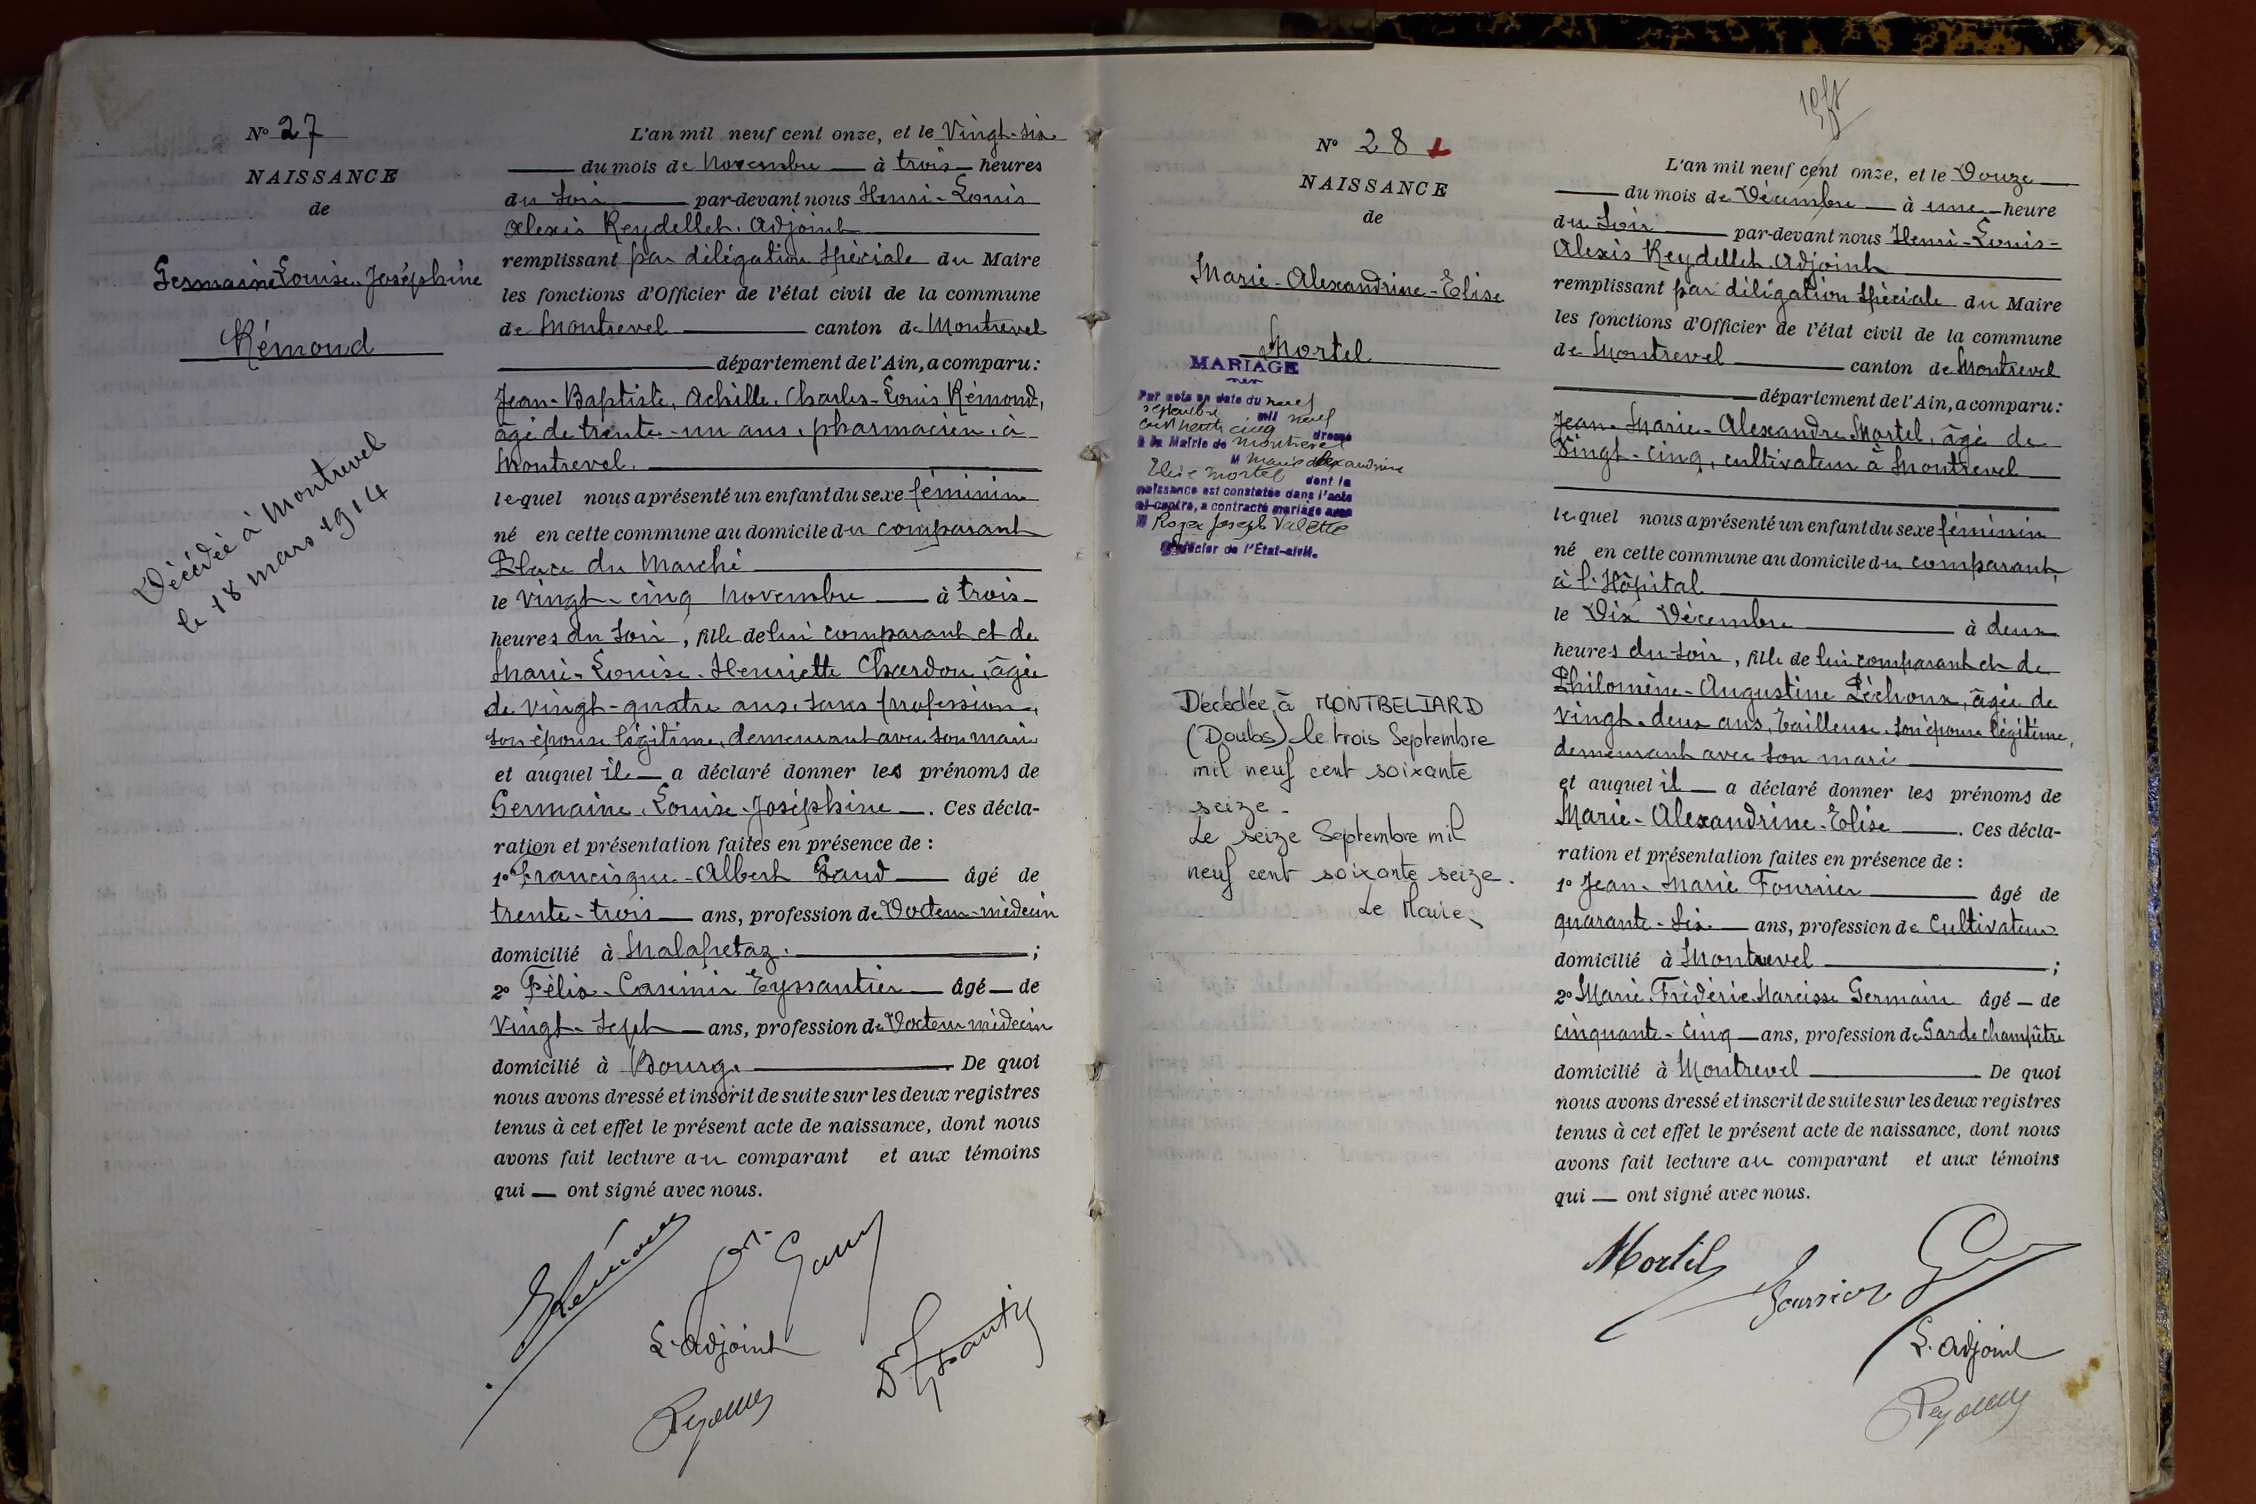 N° 27
NAISSANCE
de
Germaine Louise. Joséphine
Rémond
Décédée à Montrevel
le 18 mars 1914
L'an mil neuf cent onze, et le Vingt-six
du mois de Novembre à trois heures
du soir par-devant nous Henri-Louis
Alexis Reydellet. Adjoint
remplissant par délégation spéciale du Maire
les fonctions d'Officier de l'état civil de la commune
de Montrevel canton de Montrevel
département de l'Ain, a comparu:
Jean-Baptiste, Achille. Charles-Louis Rémond,
âgé de trente-un ans, pharmacien, à
Montrevel.
lequel nous a présenté un enfant du sexe féminin
né en cette commune au domicile du comparant
Place du Marché
le vingt-cinq Novembre à trois
heures du soir, fille de lui comparant et de
Marie-Louise-Henriette Chardon, âgée
de vingt-quatre ans, sans profession,
son épouse légitime, demeurant avec son mari
et auquel il a déclaré donner les prénoms de
Germaine. Louise. Joséphine. Ces décla-
ration et présentation faites en présence de :
1° Francisque-Albert Gaud âgé de
trente-trois ans, profession de Docteur-médecin
domicilié à Malafretaz. ;
2° Félix-Casimir Eyssautier âgé de
Vingt-sept ans, profession de Docteur médecin
domicilié à Bourg. De quoi
nous avons dressé et inscrit de suite sur les deux registres
tenus à cet effet le présent acte de naissance, dont nous
avons fait lecture au comparant et aux témoins
qui ont signé avec nous.
Rémond
L'adjoint
N° 28
NAISSANCE
de
Marie-Alexandrine-Elise
Mortel
MARIAGE
Par acte en date du neuf
septembre mil neuf
cent trente cinq dressé
à la Mairie de Montrevel
M Marie Alexandrine
Elise Mortel dont la
naissance est constatée dans l'acte
ci-contre, a contracté mariage avec
M Roger Joseph Valette
l'Officier de l'État-civil.
Décédée à MONTBELIARD
(Doubs) le trois Septembre
mil neuf cent soixante
seize -
Le seize Septembre mil
neuf cent soixante seize.
Le Maire
L'an mil neuf cent onze, et le Douze
du mois de Décembre à une heure
du soir par-devant nous Henri-Louis-
Alexis Reydellet. Adjoint
remplissant par délégation spéciale du Maire
les fonctions d'Officier de l'état civil de la commune
de Montrevel canton de Montrevel
département de l'Ain, a comparu:
Jean-Marie-Alexandre Mortel, âgé de
Vingt-cinq, cultivateur à Montrevel
lequel nous a présenté un enfant du sexe féminin
né en cette commune au domicile du comparant,
à l'Hôpital
le Dix Décembre à deux
heures du soir, fille de lui comparant et de
Philomène-Augustine Péchoux, âgée de
vingt-deux ans, tailleuse, son épouse légitime,
demeurant avec son mari
et auquel il a déclaré donner les prénoms de
Marie-Alexandrine-Elise. Ces décla-
ration et présentation faites en présence de :
1° Jean-Marie Fournier âgé de
quarante-six ans, profession de Cultivateur
domicilié à Montrevel ;
2° Marie. Frédéric. Narcisse Germain âgé de
cinquante-cinq ans, profession de Garde champêtre
domicilié à Montrevel De quoi
nous avons dressé et inscrit de suite sur les deux registres
tenus à cet effet le présent acte de naissance, dont nous
avons fait lecture au comparant et aux témoins
qui ont signé avec nous.
Mortel
Fournier
L'adjoint